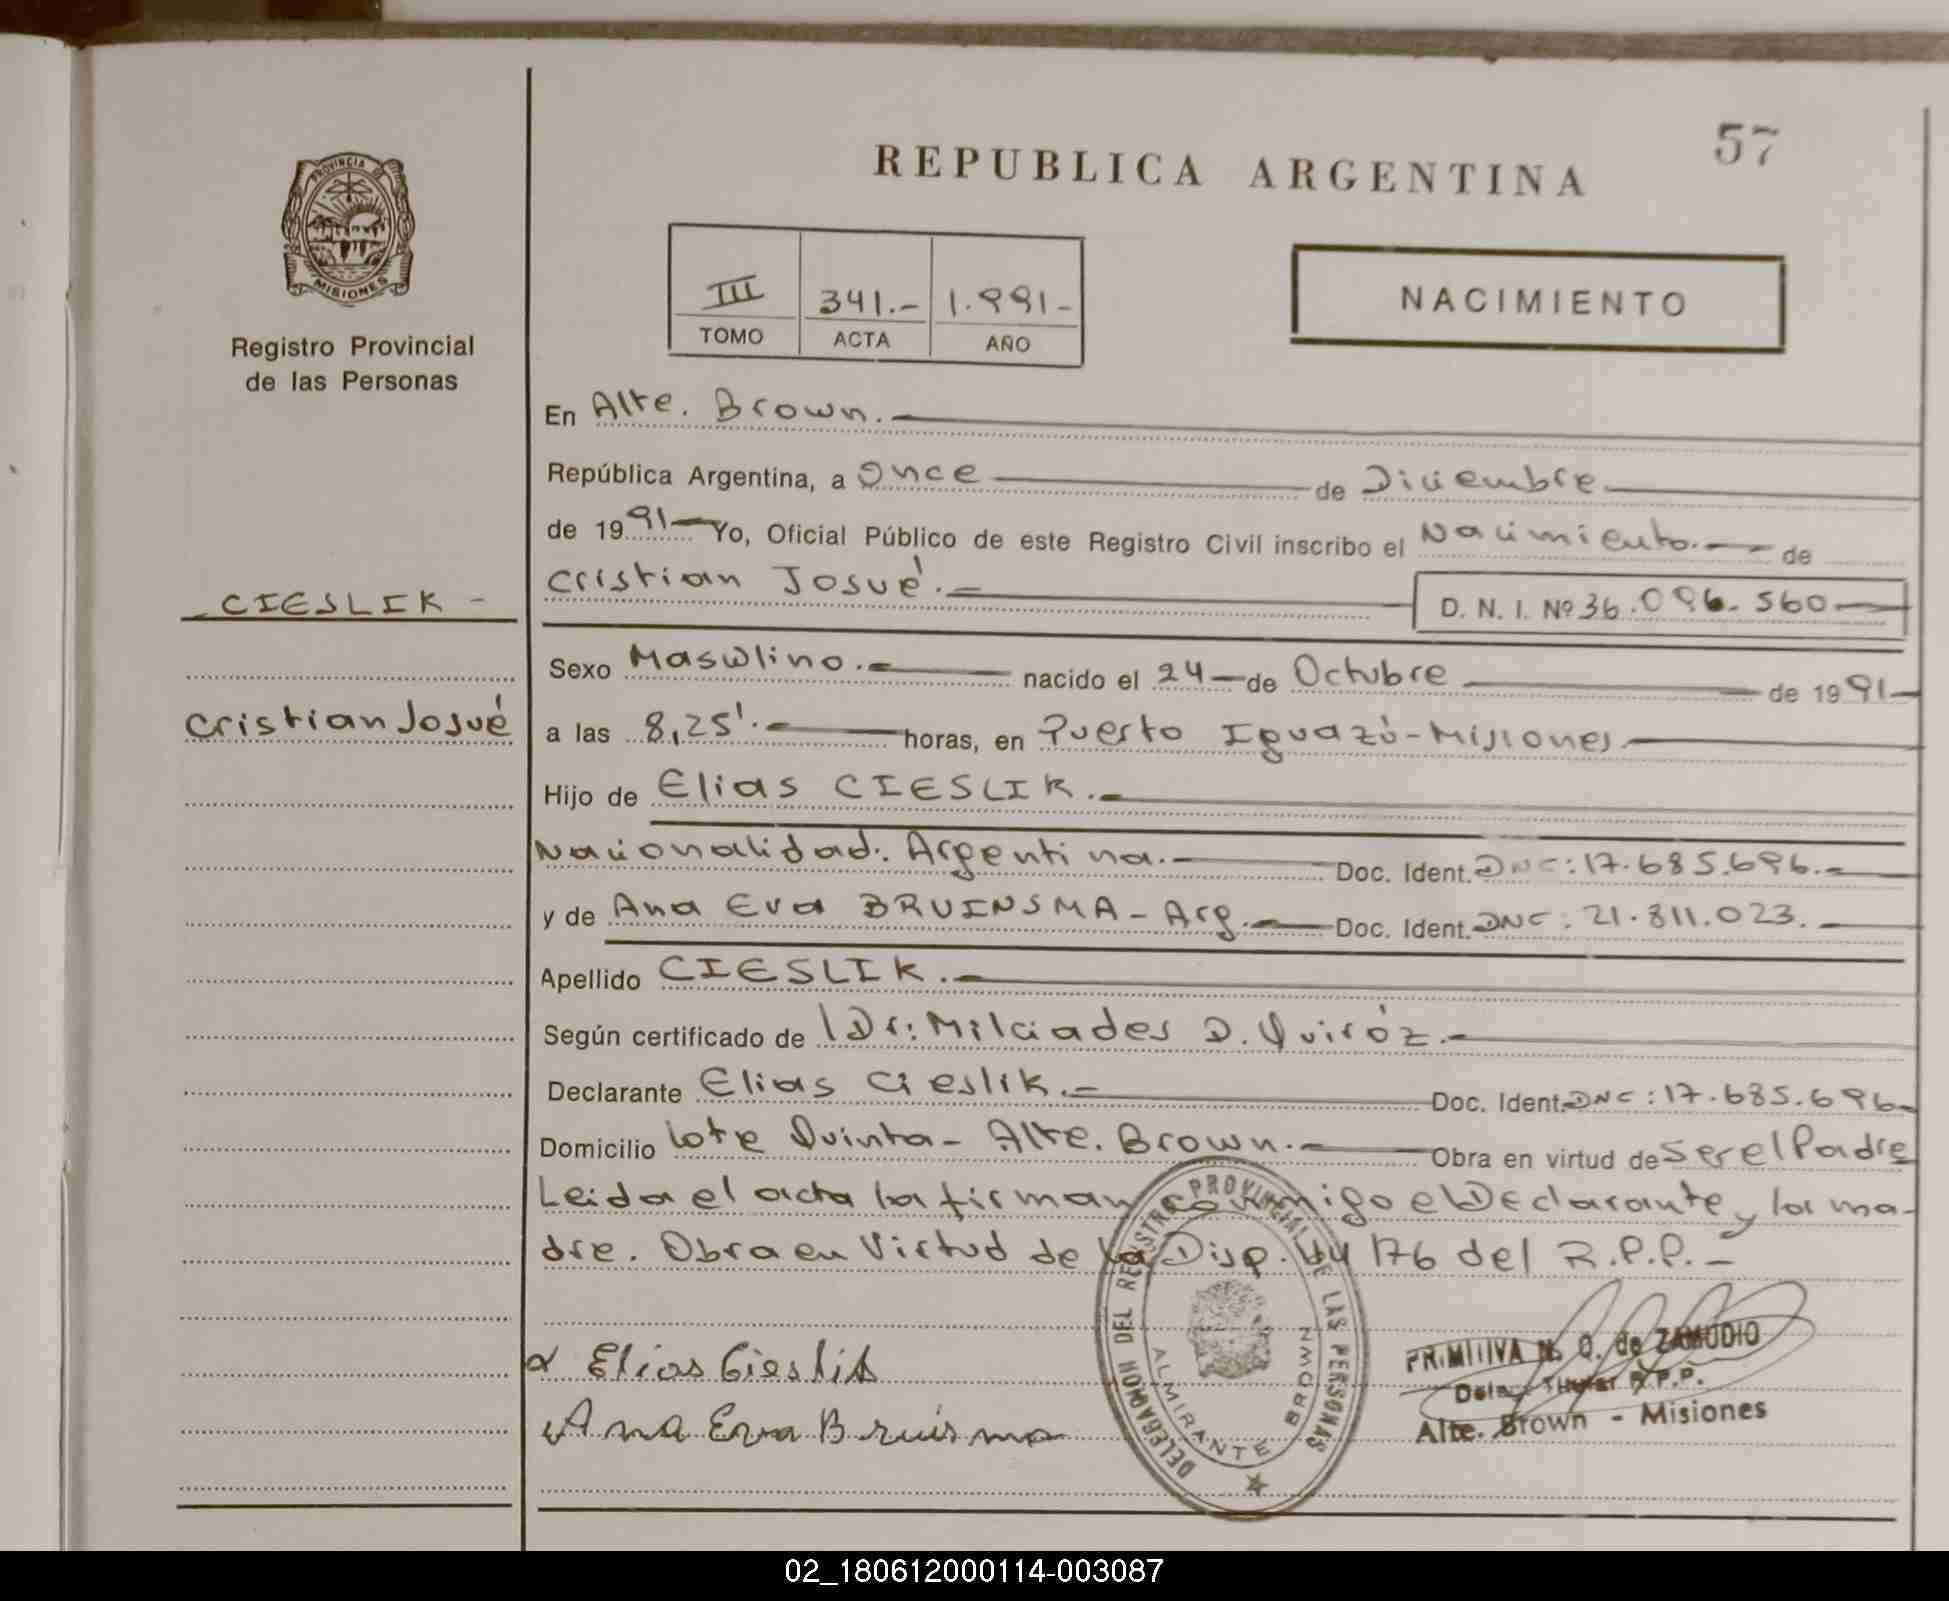 57
REPUBLICA ARGENTINA
PROVINCIA DE
MISIONES
Registro Provincial
de las Personas
III 341.- 1.991-
TOMO ACTA AÑO
NACIMIENTO
En Alte. Brown.
República Argentina, a Once de Diciembre
de 1991 Yo, Oficial Público de este Registro Civil inscribo el Nacimiento. de
Cristian Josué.
D. N. I. Nº 36.096.560
CIESLIK -
Cristian Josué
Sexo Masculino. nacido el 24 de Octubre de 1991
a las 8,25'. horas, en Puerto Iguazú-Misiones
Hijo de Elias CIESLIK.
Nacionalidad. Argentina. Doc. Ident. DNI: 17.685.696.
y de Ana Eva BRUINSMA - Arg. Doc. Ident. DNI: 21.811.023.
Apellido CIESLIK.
Según certificado de Dr: Milciades D. Quiróz.
Declarante Elias Cieslik. Doc. Ident. DNI: 17.685.696
Domicilio lote Quinta - Alte. Brown. Obra en virtud de ser el Padre
Leida el acta la firman conmigo el Declarante y la ma-
dre. Obra en Virtud de la Disp. 64/76 del R.P.P. -
Elias Cieslik
Ana Eva Bruisma
DELEGACION DEL REGISTRO PROVINCIAL DE LAS PERSONAS
ALMIRANTE BROWN
PRIMITIVA N. Q. de ZAMUDIO
Deleg. Titular R.P.P.
Alte. Brown - Misiones
02_180612000114-003087